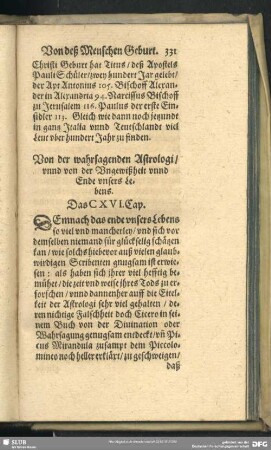 Von deß Menschen Geburt. 331
Christi Geburt hat Titus/ deß Apostels
Pauli Schüler/ zwey hundert Jar gelebt/
der Apt Antonius 105. Bischoff Alexan-
der in Alexandria 94. Narcissus Bischoff
zu Jerusalem 116. Paulus der erste Ein-
sidler 113. Gleich wie dann noch jetzundt
in gantz Italia vnnd Teutschlandt viel
Leut vber hundert Jahr zu finden.
Von der wahrsagenden Astrologi/
vnnd von der Vngewißheit vnnd
Ende vnsers Le-
bens.
Das CXVI. Cap.
DEmnach das ende vnsers Lebens
so viel vnd mancherley/ vnd sich vor
demselben niemand für glückselig schätzen
kan/ wie solchs hiebevor auß vielen glaub-
wirdigen Scribenten gnugsam ist erwie-
sen: als haben sich jhrer viel hefftig be-
mühet/ die zeit vnd weise jhres Tods zu er-
forschen/ vnnd dannenher auff die Eitel-
keit der Astrologi sehr viel gehalten/ de-
ren nichtige Falschheit doch Cicero in sei-
nem Buch von der Divination oder
Wahrsagung gnugsam entdeckt/ vñ Pi-
cus Mirandula zusampt dem Piccolo-
mineo noch heller erklärt/ zu geschweigen/
daß
SLUB